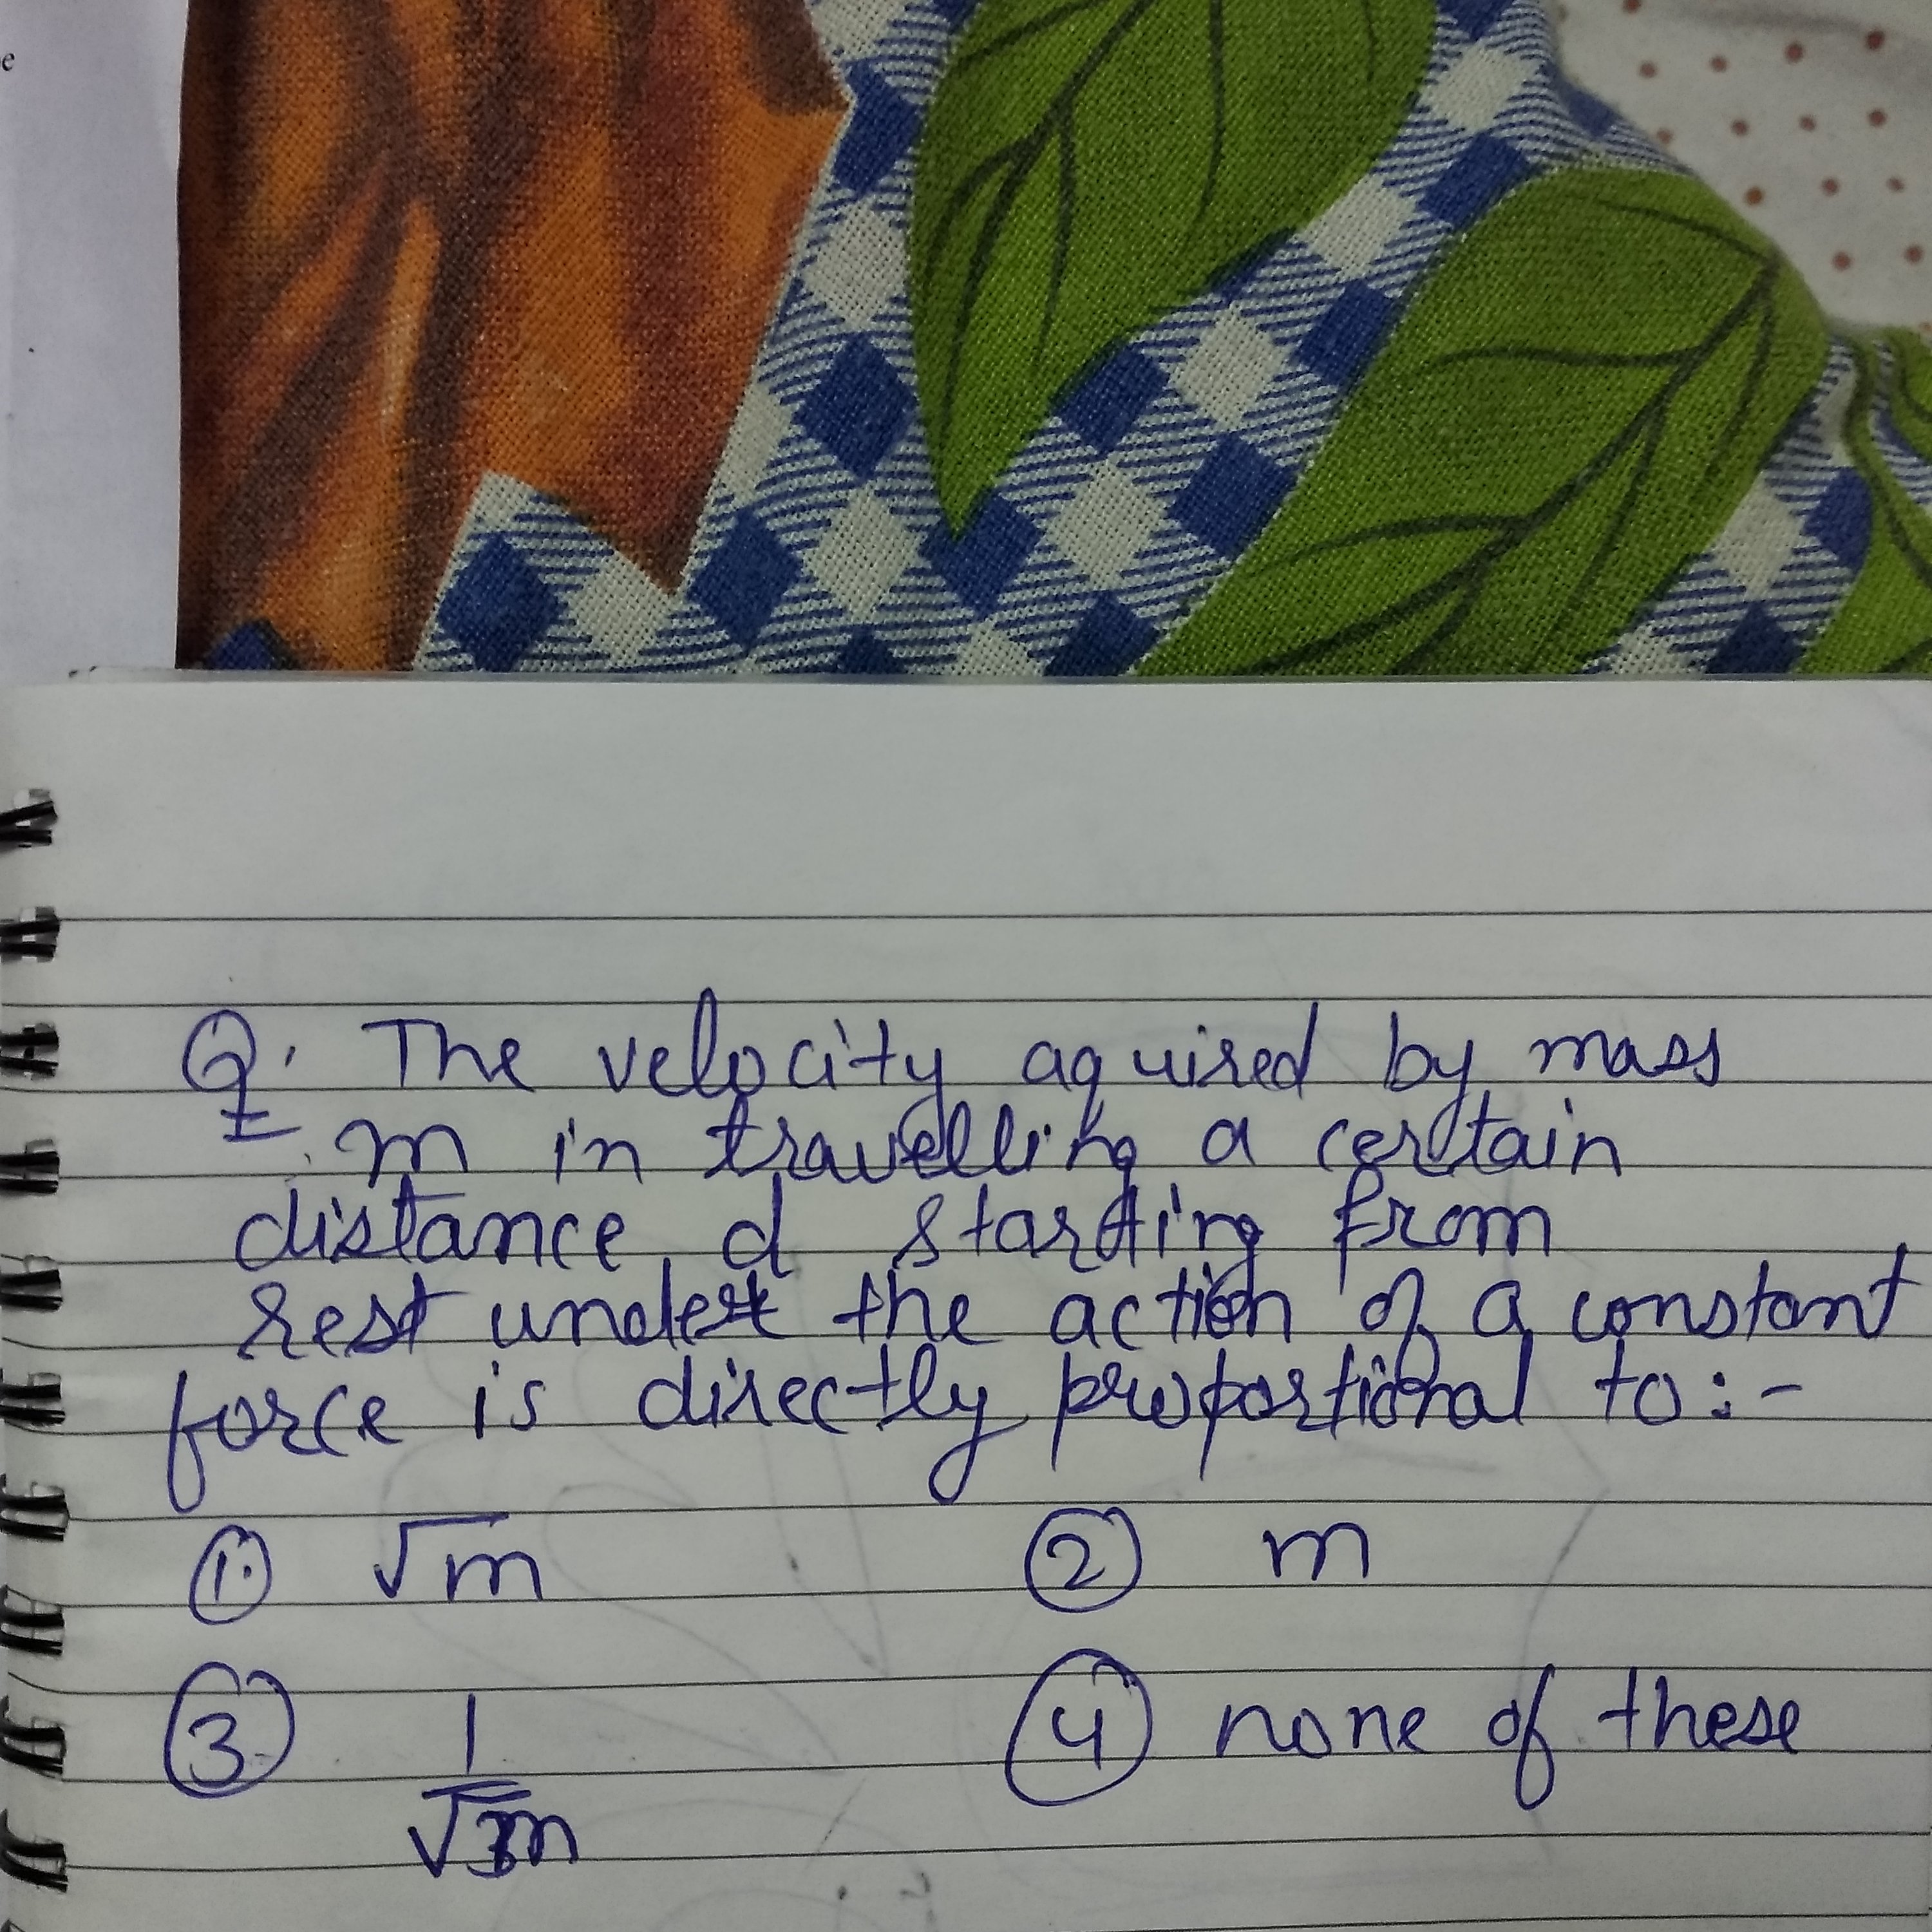 e
Q. The velocity aquired by mass
m in travelling a certain
distance d starting from
rest under the action of a constant
force is directly proportional to:-
① √m ② m
③ 1/√m ④ none of these